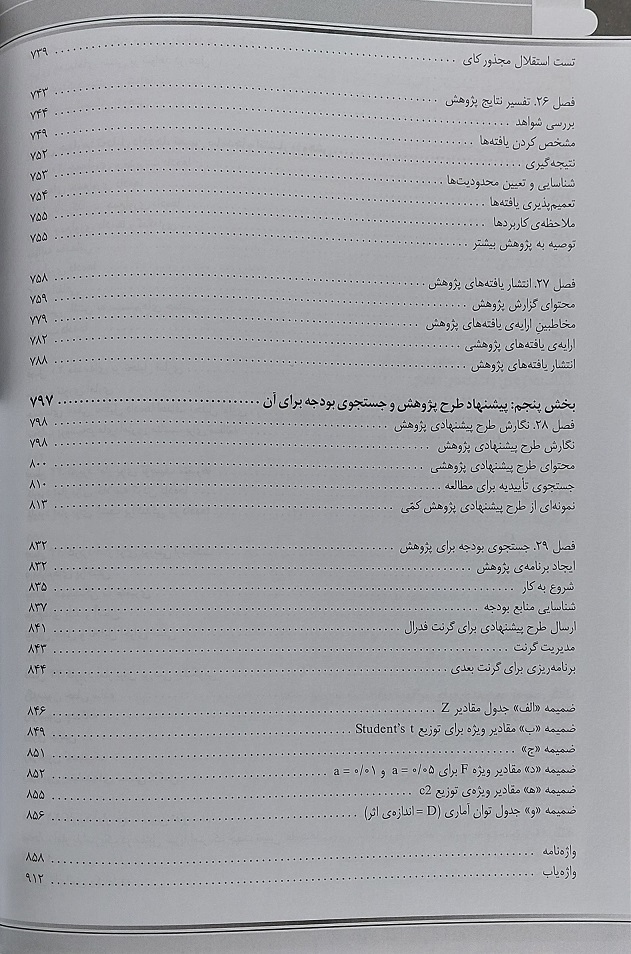 تست استقلال مجذور کای ۷۳۹
فصل ۲۶. تفسیر نتایج پژوهش ۷۴۳
بررسی شواهد ۷۴۴
مشخص کردن یافته‌ها ۷۴۹
نتیجه‌گیری ۷۵۲
شناسایی و تعیین محدودیت‌ها ۷۵۳
تعمیم‌پذیری یافته‌ها ۷۵۴
ملاحظه‌ی کاربردها ۷۵۵
توصیه به پژوهش بیشتر ۷۵۵
فصل ۲۷. انتشار یافته‌های پژوهش ۷۵۸
محتوای گزارش پژوهش ۷۵۹
مخاطبین ارایه‌ی یافته‌های پژوهش ۷۷۹
ارایه‌ی یافته‌های پژوهشی ۷۸۲
انتشار یافته‌های پژوهش ۷۸۸
بخش پنجم: پیشنهاد طرح پژوهش و جستجوی بودجه برای آن ۷۹۷
فصل ۲۸. نگارش طرح پیشنهادی پژوهش ۷۹۸
نگارش طرح پیشنهادی پژوهش ۷۹۸
محتوای طرح پیشنهادی پژوهشی ۸۰۰
جستجوی تأییدیه برای مطالعه ۸۱۰
نمونه‌ای از طرح پیشنهادی پژوهش کمّی ۸۱۳
فصل ۲۹. جستجوی بودجه برای پژوهش ۸۳۲
ایجاد برنامه‌ی پژوهش ۸۳۲
شروع به کار ۸۳۵
شناسایی منابع بودجه ۸۳۷
ارسال طرح پیشنهادی برای گرنت فدرال ۸۴۱
مدیریت گرنت ۸۴۳
برنامه‌ریزی برای گرنت بعدی ۸۴۴
ضمیمه «الف» جدول مقادیر Z ۸۴۶
ضمیمه «ب» مقادیر ویژه برای توزیع Student's t ۸۴۹
ضمیمه «ج» ۸۵۱
ضمیمه «د» مقادیر ویژه F برای a = ۰/۰۵ و a = ۰/۰۱ ۸۵۲
ضمیمه «ه» مقادیر ویژه‌ی توزیع c2 ۸۵۵
ضمیمه «و» جدول توان آماری (D = اندازه‌ی اثر) ۸۵۶
واژه‌نامه ۸۵۸
واژه‌یاب ۹۱۲